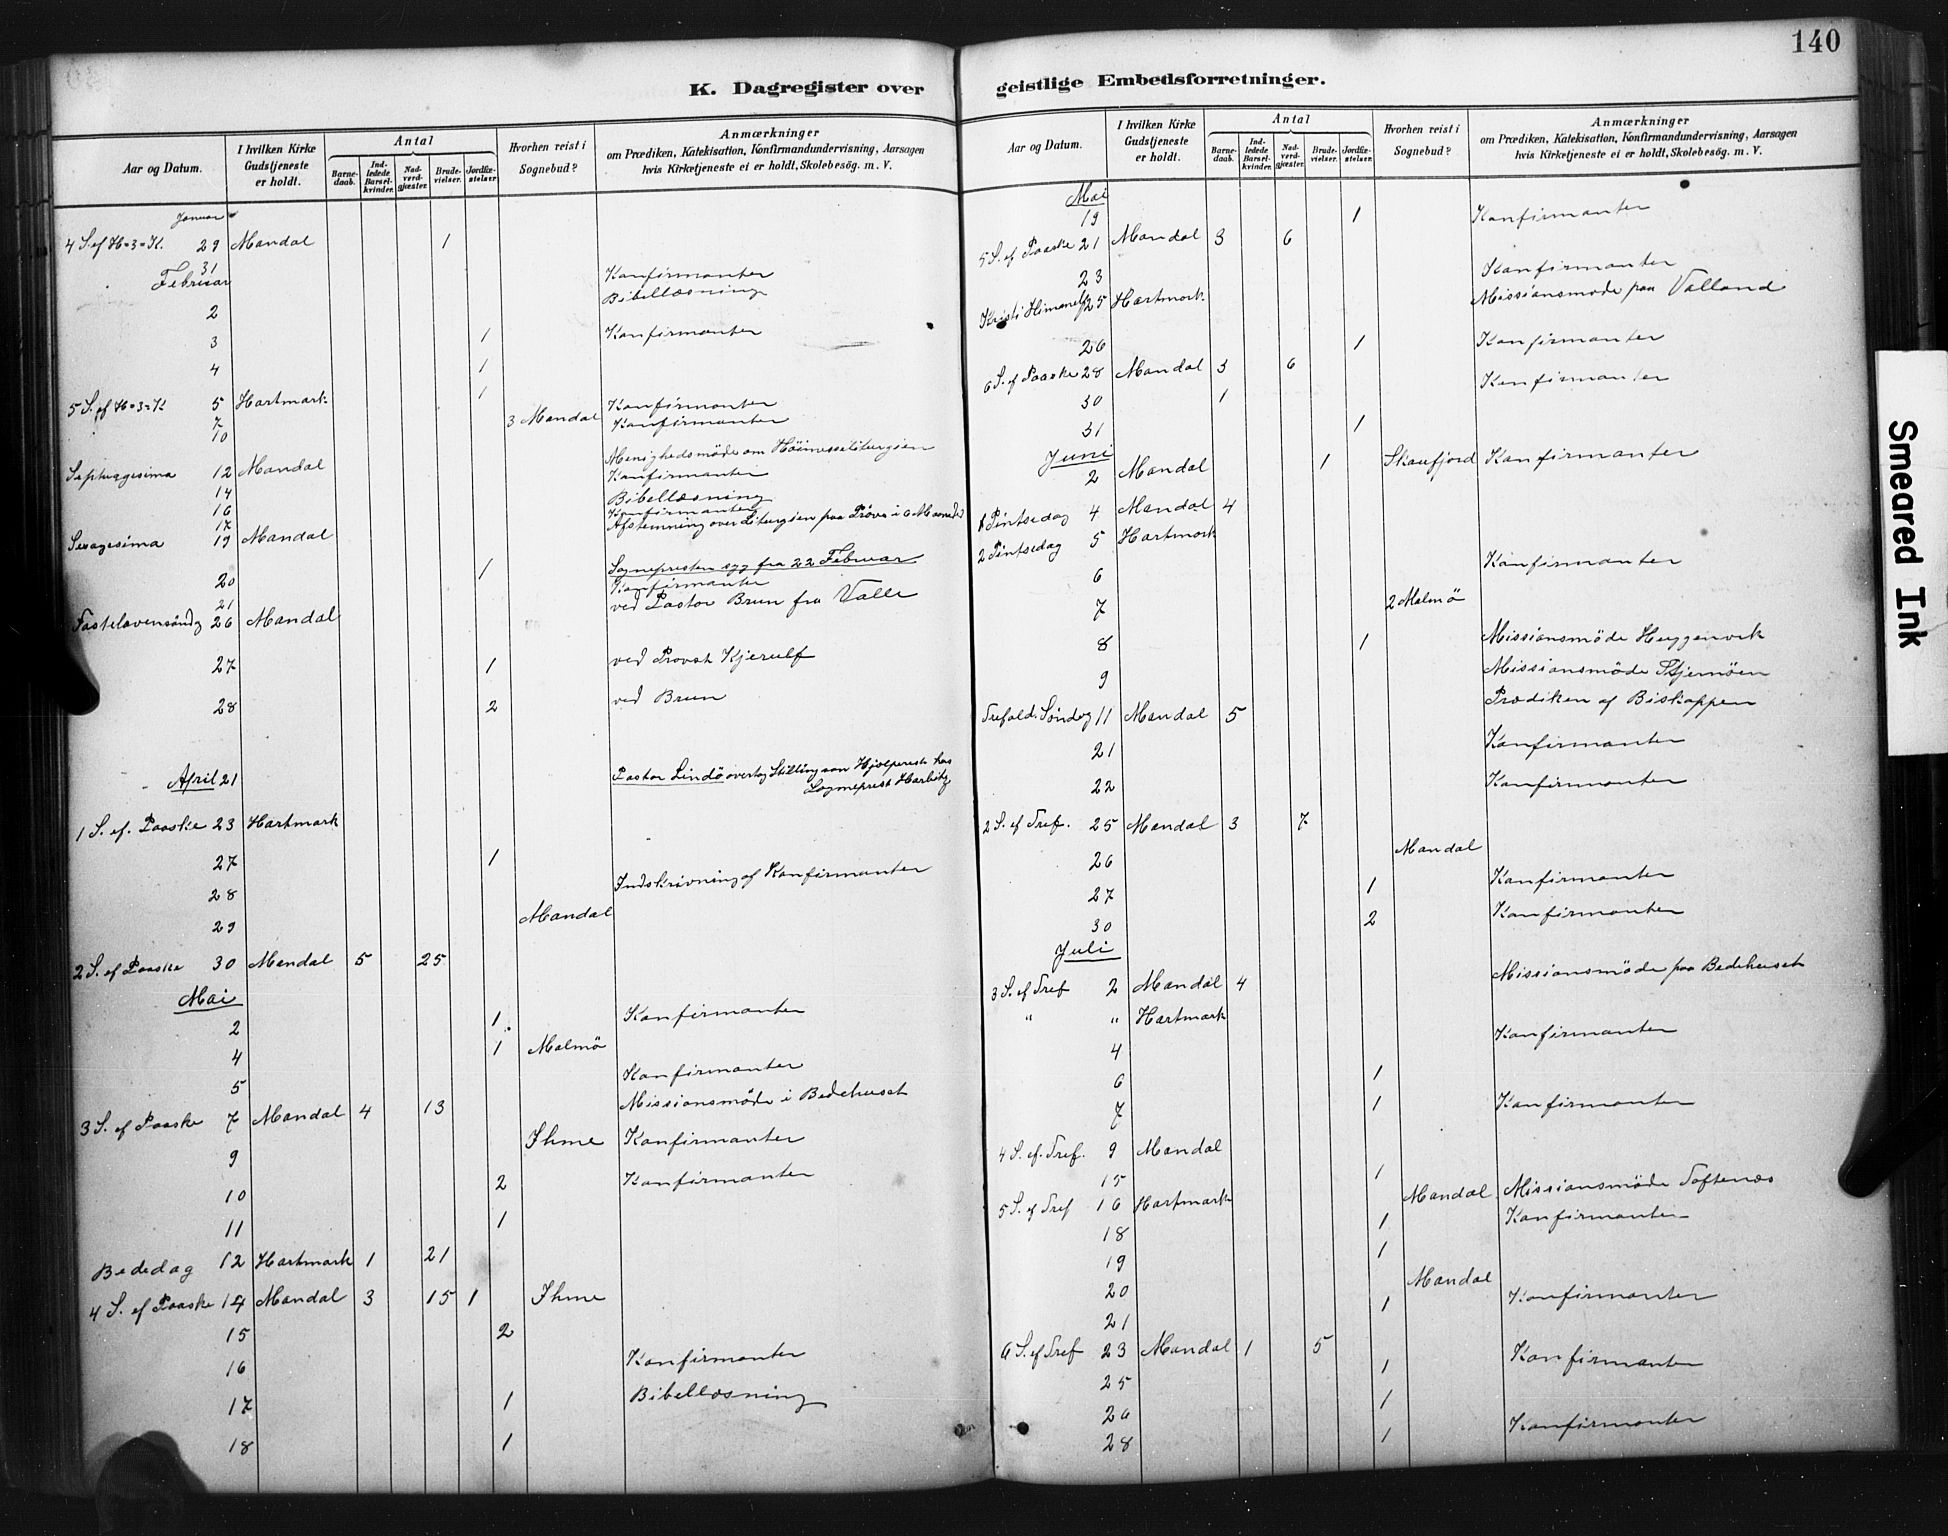 140
K. Dagregister over
Aar og Datum.
I hvilken Kirke Gudstjeneste er holdt.
Antal
Barnedaab.
Indledede Barselkvinder.
Nadverdgjæster.
Brudevielser.
Jordfæstelser.
Hvorhen reist i Sognebud?
Anmærkninger
om Prædiken, Katekisation, Konfirmandundervisning, Aarsagen
hvis Kirketjeneste ei er holdt, Skolebesøg. m. V.
Januar
4 S. ef H=3=K. 29 Mandal 1
31 Konfirmanter
Februar
2 Bibellæsning
3 1 Konfirmanter
4 1
5 S. ef H=3=K 5 Hartmark 1
7 3 Mandal Konfirmanter
10 Konfirmanter
Septuagesima 12 Mandal Menighedsmøde om Høimesseliturgien
14 Konfirmanter
16 Bibellæsning
17 Konfirmanter
Sexagesima 19 Mandal Afstemning over Liturgien paa Prøve i 6 Maaneder
20 1 Sognepresten syg fra 22 Februar
21 Konfirmanter
Fastelavensöndg 26 Mandal ved Pastor Brun fra Valle
27 1 ved Provst Kjerulf
28 2 ved Brun
April 21 Pastor Lindö overtog Stilling som Hjælpeprest hos
Sogneprest Harbitz
1 S. ef. Paaske 23 Hartmark
27 1
28 Indskrivning af Konfirmanter
29 Mandal
2 S. ef Paaske 30 Mandal 5 25
Mai
2 1 Konfirmanter
4 1 Malmø
5 Konfirmanter
3 S. ef Paaske 7 Mandal 4 13 Missionsmøde i Bedehuset
9 Ihme Konfirmanter
10 2 Konfirmanter
11 1
Bededag 12 Hartmark 1 21
4 S. ef Paaske 14 Mandal 3 15 1 Ihme
15 2
16 Konfirmanter
17 1 Bibellæsning
18 1
geistlige Embedsforretninger.
Aar og Datum.
I hvilken Kirke Gudstjeneste er holdt.
Antal
Barnedaab.
Indledede Barselkvinder.
Nadverdgjæster.
Brudevielser.
Jordfæstelser.
Hvorhen reist i Sognebud?
Anmærkninger
om Prædiken, Katekisation, Konfirmandundervisning, Aarsagen
hvis Kirketjeneste ei er holdt, Skolebesøg. m. V.
Mai
19 1 Konfirmanter
5 S. ef Paaske 21 Mandal 3 6
23 Konfirmanter
Kristi Himmelf 25 Hartmark Missionsmøde paa Valland
26 1 Konfirmanter
6 S. ef Paaske 28 Mandal 3 6
30 1 Konfirmanter
31 1
Juni
2 Mandal 1 Skaufjord Konfirmanter
1 Pintsedag 4 Mandal 4
2 Pintsedag 5 Hartmark
6 Konfirmanter
7 2 Malmö
8 1 Missionsmøde Haggenvik
9 Missionsmøde Skjernöen
Trefold. Söndag 11 Mandal 5 Prædiken af Biskoppen
21 Konfirmanter
22 Konfirmanter
2 S. ef Tref. 25 Mandal 3 7
26 Mandal
27 1 Konfirmanter
30 2 Konfirmanter
Juli
3 S. ef Tref 2 Mandal 4 Missionsmøde paa Bedehuset
" " Hartmark
4 Konfirmanter
6 1
7 1 Konfirmanter
4 S. ef. Tref. 9 Mandal
15 1
5 S. ef Tref 16 Hartmark Mandal Missionsmøde Toftenæs
18 1 Konfirmanter
19 1
20 Mandal
21 1 Konfirmanter
6 S. ef Tref 23 Mandal 1 5
25 1 Konfirmanter
26 1
28 1 Konfirmanter
Smeared Ink